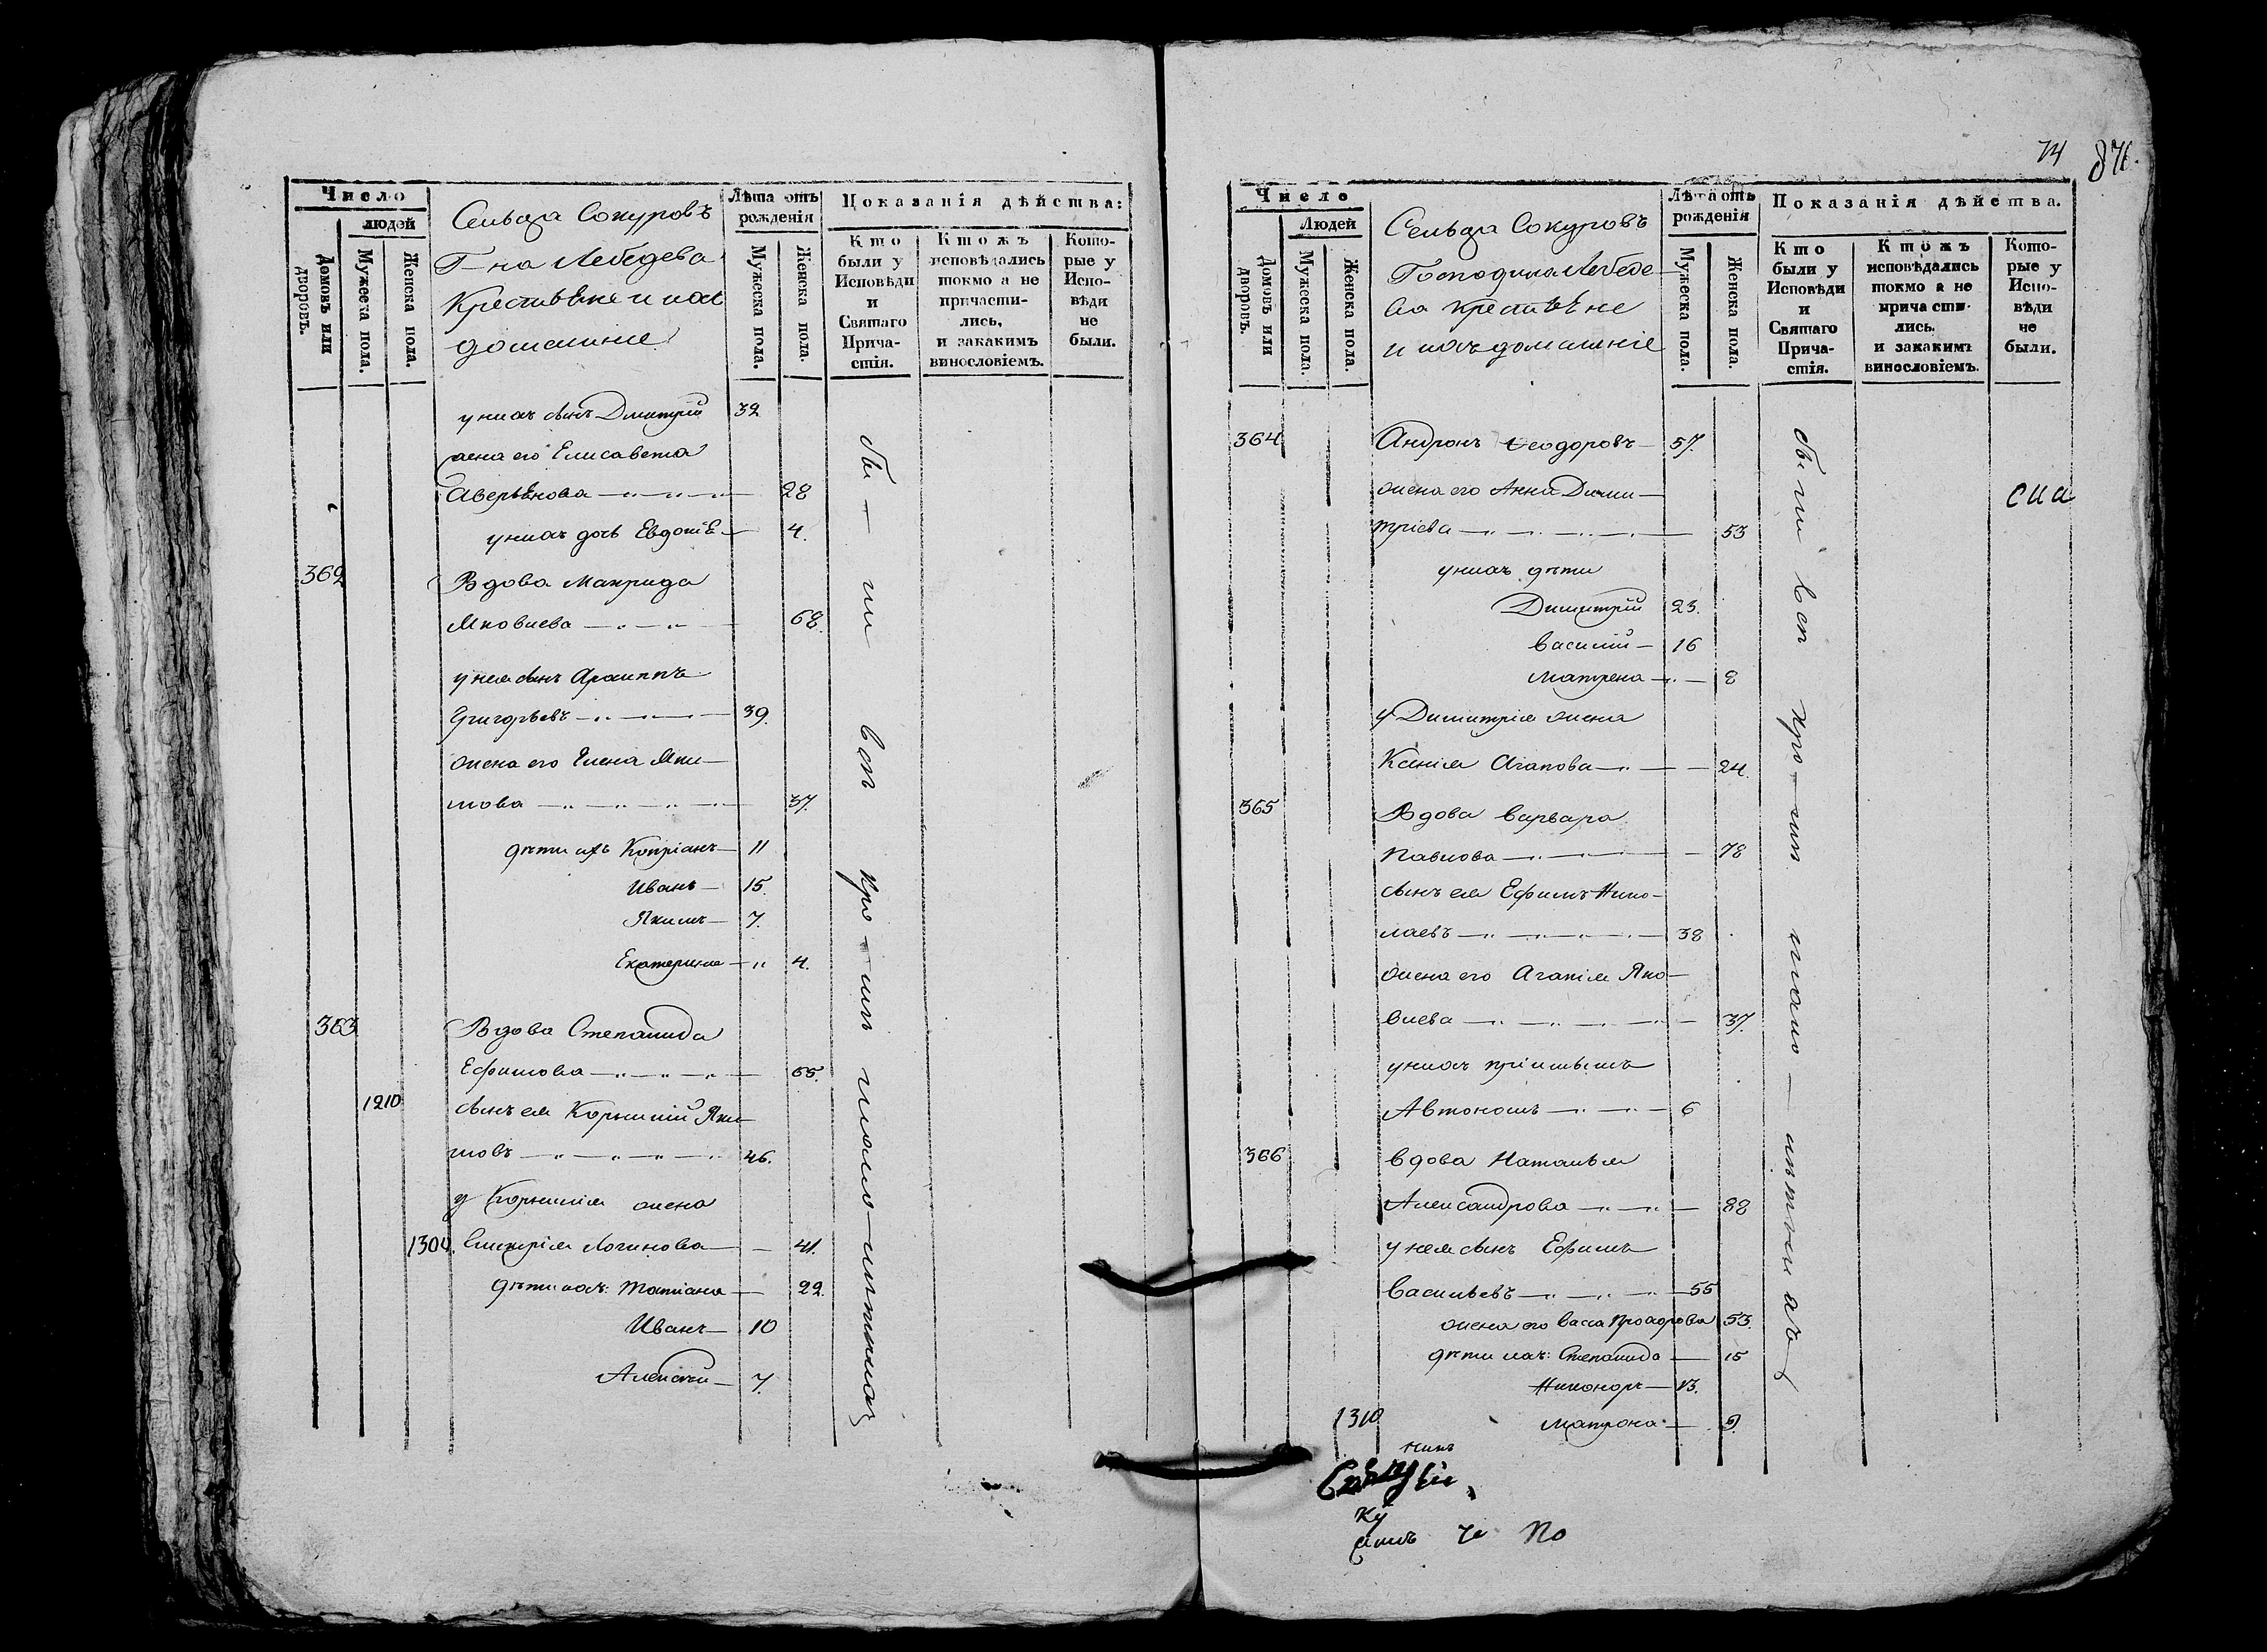 Число
людей
Домовъ или дворовъ.
Мужеска пола.
Женска пола.
Сельца Сокуровъ
Г-на Лебедева
Крестьѣне и ихъ
домашніе
Лѣта отъ рожденія
Мужеска пола.
Женска пола.
Показанія дѣйства:
Кто были у Исповѣди и Святаго Прича-стія.
Ктожъ исповѣдались токмо а не причасти-лись, и закакимъ винословіемъ.
Кото-рые у Испо-вѣди не были.
у нихъ сынъ Дмитрій 32
жена его Елисавета
Аверьѣнова 28
у нихъ дочь Евдокіѣ 4.
362 Вдова Макрида
Яковлева 68.
у нея сынъ Архиппъ
Григорьевъ 39.
жена его Елена Яки-
мова 37.
дѣти ихъ Кипріанъ 11
Иванъ 15.
Якимъ 7.
Екатерина 4.
363 Вдова Степанида
Ефимова 65.
1210 сынъ ея Корнилій Яки-
мовъ 46.
у Корнилія жена
1304. Гликерія Логинова 41.
дѣти ихъ: Татіана 22.
Иванъ 10
Алексѣй 7.
бы - ли всѣ
74 876.
Число
Людей
Домовъ или дворовъ.
Мужеска пола.
Женска пола.
Сельца Сокуровъ
Господина Лебеде-
ва крестьѣне
и ихъ домашніе
Лѣта отъ рожденія
Мужеска пола.
Женска пола.
Показанія дѣйства.
Кто были у Исповѣди и Святаго Прича-стія.
Ктожъ исповѣдались токмо а не прича сти-лись. и закакимъ винословіемъ.
Кото-рые у Испо-вѣди не были.
364 Андронъ Ѳеодоровъ 57.
жена его Анна Дими-
тріева 53
у нихъ дѣти
Димитрій 23.
Василій 16
Матрена 8
у Димитрія жена
Ксенія Агапова 24.
365 Вдова Варвара
Павлова 78
сынъ ея Ефимъ Нико-
лаевъ 38
жена его Агапія Яко-
влева 37.
у нихъ пріимышъ
Автономъ 6
366 вдова Наталья
Александрова 88
у нея сынъ Ефимъ
Васильевъ 55
жена его Васса 53.
дѣти ихъ: Степанида 15
Никоноръ 13.
1310 Матрона 9
были всѣ